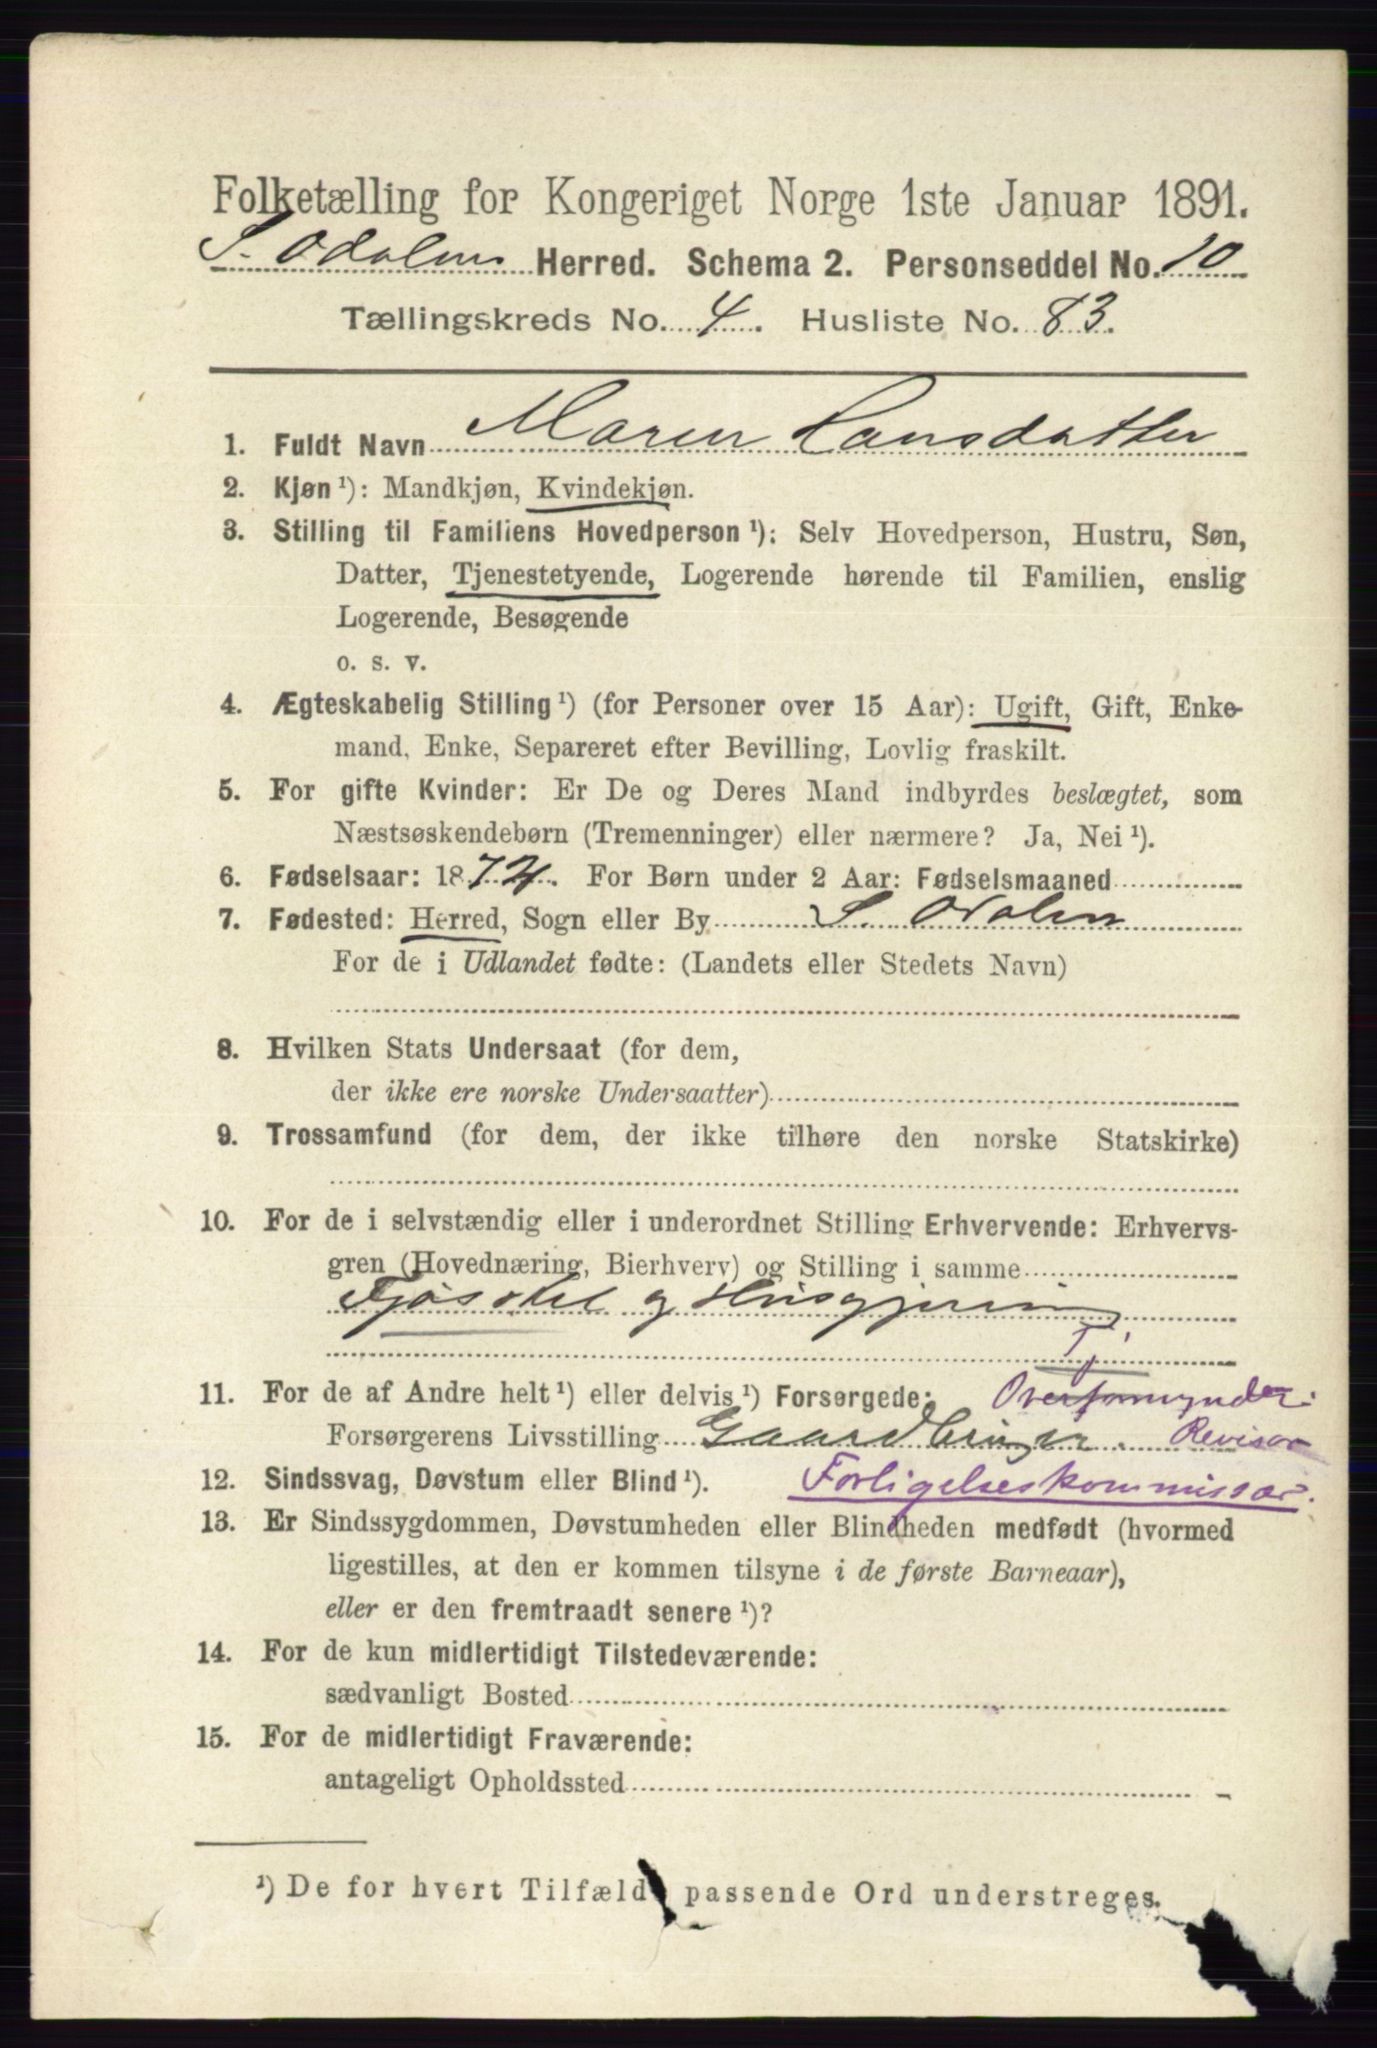 Folketælling for Kongeriget Norge 1ste Januar 1891.
S. Odalen Herred. Schema 2. Personseddel No. 10
Tællingskreds No. 4. Husliste No. 83.
1. Fuldt Navn Maren Hansdatter
2. Kjøn ¹): Mandkjøn, Kvindekjøn.
3. Stilling til Familiens Hovedperson ¹): Selv Hovedperson, Hustru, Søn,
Datter, Tjenestetyende, Logerende hørende til Familien, enslig
Logerende, Besøgende
o. s. v.
4. Ægteskabelig Stilling ¹) (for Personer over 15 Aar): Ugift, Gift, Enke-
mand, Enke, Separeret efter Bevilling, Lovlig fraskilt.
5. For gifte Kvinder: Er De og Deres Mand indbyrdes beslægtet, som
Næstsøskendebørn (Tremenninger) eller nærmere? Ja, Nei ¹).
6. Fødselsaar: 1874. For Børn under 2 Aar: Fødselsmaaned
7. Fødested: Herred, Sogn eller By S. Odalen
For de i Udlandet fødte: (Landets eller Stedets Navn)
8. Hvilken Stats Undersaat (for dem,
der ikke ere norske Undersaatter)
9. Trossamfund (for dem, der ikke tilhøre den norske Statskirke)
10. For de i selvstændig eller i underordnet Stilling Erhvervende: Erhvervs-
gren (Hovednæring, Bierhverv) og Stilling i samme
Fjøsstel og Husgjerning
Tj.
11. For de af Andre helt ¹) eller delvis ¹) Forsørgede: Overformynder.
Forsørgerens Livsstilling Gaardbruger. Revisor
12. Sindssvag, Døvstum eller Blind ¹). Forligelseskommissær.
13. Er Sindssygdommen, Døvstumheden eller Blindheden medfødt (hvormed
ligestilles, at den er kommen tilsyne i de første Barneaar),
eller er den fremtraadt senere ¹)?
14. For de kun midlertidigt Tilstedeværende:
sædvanligt Bosted
15. For de midlertidigt Fraværende:
antageligt Opholdssted
¹) De for hvert Tilfæld passende Ord understreges.